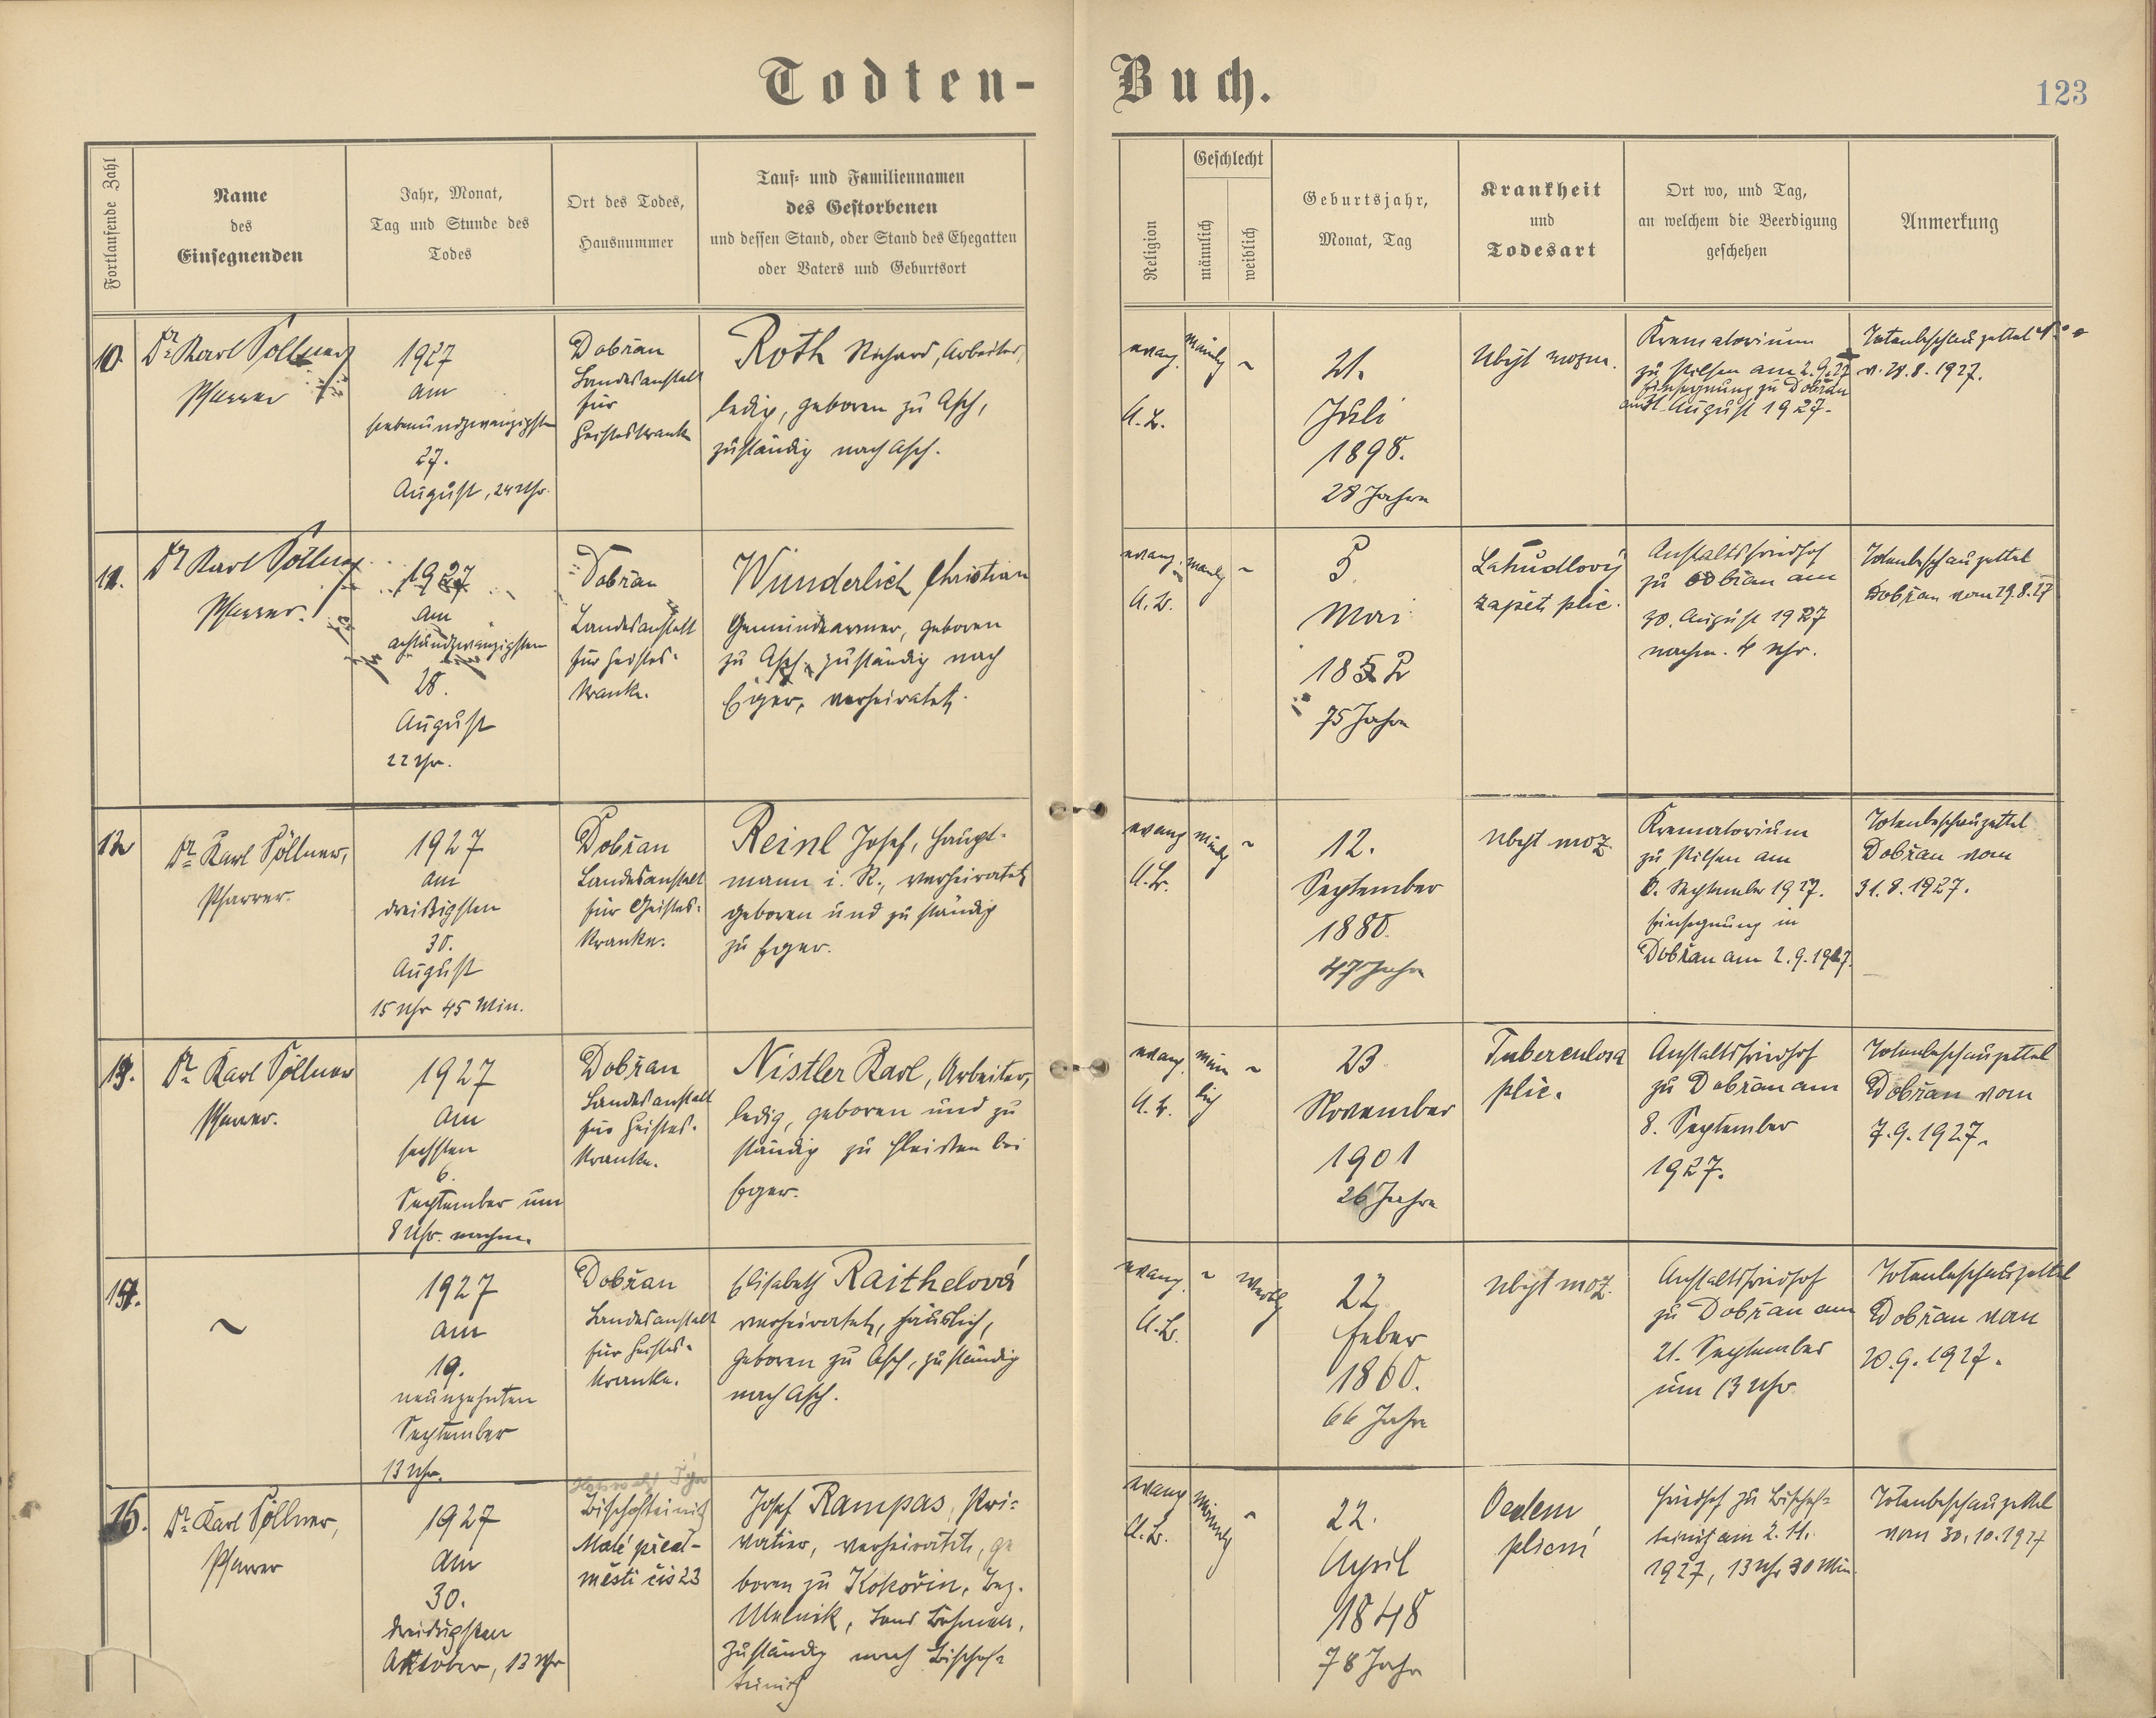 Todten-Buch.
123
Fortlaufende Zahl
Name
des
Einsegnenden
Jahr, Monat,
Tag und Stunde des
Todes
Ort des Todes,
Hausnummer
Tauf- und Familiennamen
des Gestorbenen
und dessen Stand, oder Stand des Ehegatten
oder Vaters und Geburtsort
Religion
Geschlecht
männlich
weiblich
Geburtsjahr,
Monat, Tag
Krankheit
und
Todesart
Ort wo, und Tag,
an welchem die Beerdigung
geschehen
Anmerkung
10.
Dr. Karl Söllner
Pfarrer
1927
am
siebenundzwanzigsten
27.
August, 24 Uhr.
Dobřan
Landesanstalt
für
Geisteskranke
Roth Richard, Arbeiter,
ledig, geboren zu Asch,
zuständig nach Asch.
evang.
A.B.
männl
~
21.
Juli
1898.
28 Jahre
Ubyt mozm.
Krematorium
zu Pilsen am 2.9.27
Einsegnung zu Dobřan
am 31. August 1927.
Totenbeschauzettel
v. 28.8.1927.
11.
Dr. Karl Söllner
Pfarrer.
1927
am
achtundzwanzigsten
28.
August
22 Uhr.
Dobřan
Landesanstalt
für Geistes-
kranke.
Wunderlich Christian
Gemeindearmer, geboren
zu Asch, zuständig nach
Eger, verheiratet.
evang.
A.B.
männl
~
5.
Mai
1852
75 Jahre
Katudlový
zapět plic.
Anstaltsfriedhof
zu Dobřan am
30. August 1927
nachm. 4 Uhr.
Totenbeschauzettel
Dobřan vom 29.8.27
12
Dr. Karl Söllner,
Pfarrer.
1927
am
dreißigsten
30.
August
15 Uhr 45 Min.
Dobřan
Landesanstalt
für Geistes-
kranke.
Reinl Josef, Haupt-
mann i. R., verheiratet,
geboren und zuständig
zu Eger.
evang
A.B.
männl
~
12.
September
1880.
47 Jahre
Ubyt moz.
Krematorium
zu Pilsen am
6. September 1927.
Einsegnung in
Dobřan am 2.9.1927.
Totenbeschauzettel
Dobřan vom
31.8.1927.
13.
Dr. Karl Söllner
Pfarrer.
1927
am
sechsten
6.
September um
8 Uhr. nachm.
Dobřan
Landesanstalt
für Geistes-
kranke.
Nistler Karl, Arbeiter,
ledig, geboren und zu
ständig zu Fleissen bei
Eger.
evang.
A.B.
männ
lich
~
23.
November
1901
26 Jahre
Tuberculosa
plic.
Anstaltsfriedhof
zu Dobřan am
8. September
1927.
Totenbeschauzettel
Dobřan vom
7.9.1927.
14.
~
1927
am
19.
neunzehnten
September
13 Uhr.
Dobřan
Landesanstalt
für Geistes-
kranke.
Elisabeth Raithelová
verheiratet, häuslich,
geboren zu Asch, zuständig
nach Asch.
evang.
A.B.
~
weibl
22.
Feber
1860.
66 Jahre
Ubyt moz.
Anstaltsfriedhof
zu Dobřan am
21. September
um 13 Uhr
Totenbeschauzettel
Dobřan von
20.9.1927.
15.
Dr. Karl Söllner,
Pfarrer
1927
am
30.
dreißigsten
Oktober, 13 Uhr
Týn
Bischofteinitz
Malé před-
městí čís 23
Josef Rampas, Pri-
vatier, verheiratet, ge
boren zu Kokořin, Bez.
Melnik, Land Böhmen,
zuständig nach Bischof-
teinitz
evang
A.B.
männl
~
22.
April
1848
78 Jahre
Oedem
plicní
Friedhof zu Bischof-
teinitz am 2.11.
1927, 13 Uhr 30 Min.
Totenbeschauzettel
vom 30.10.1927